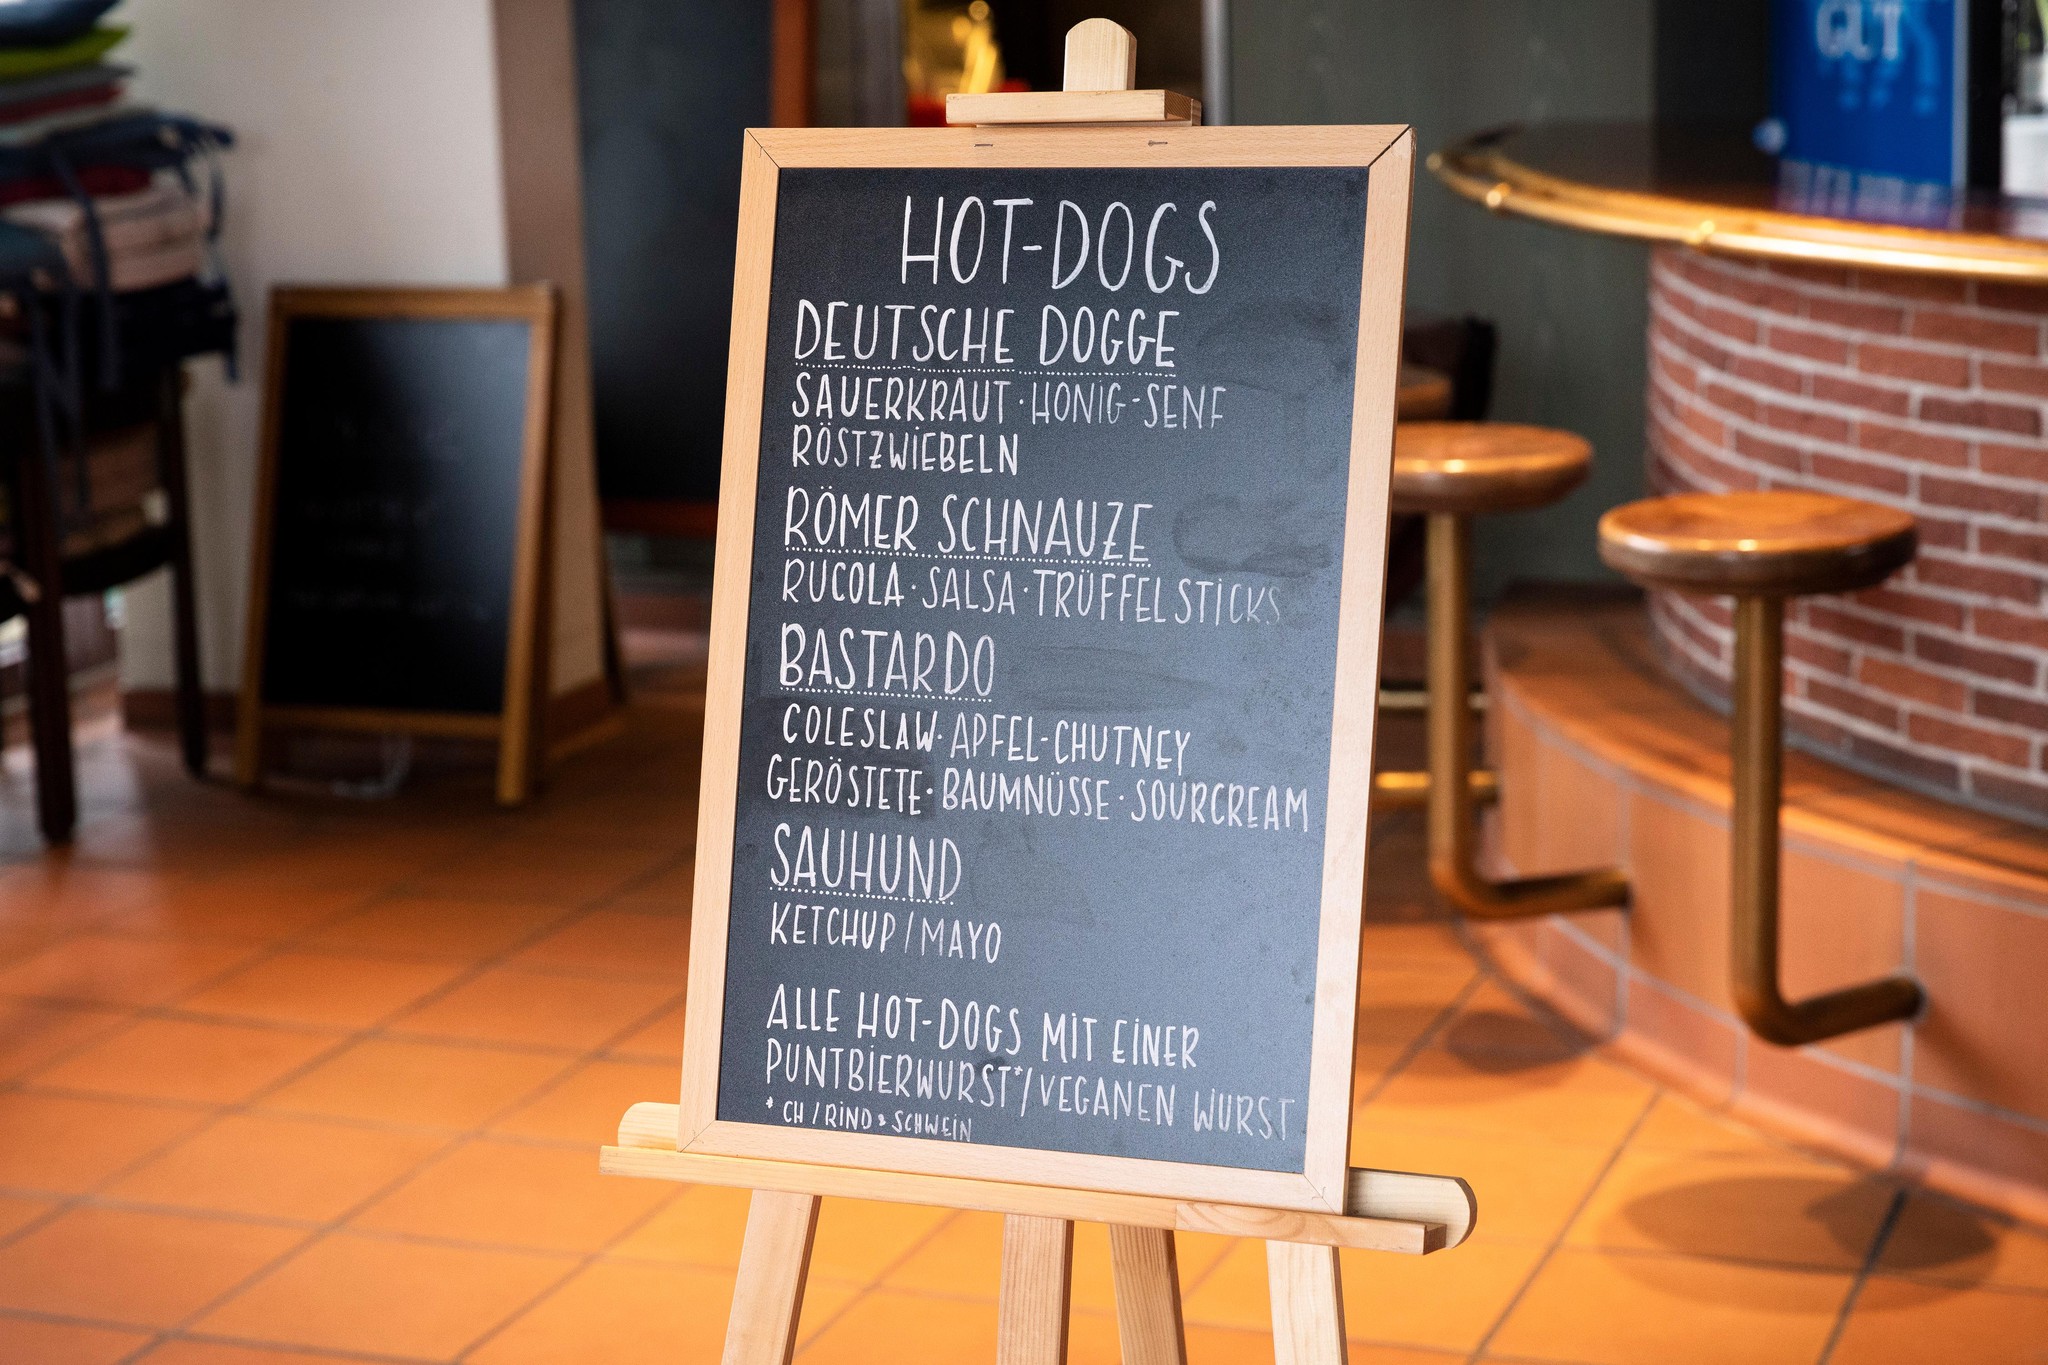 GUT
HOT-DOGS
DEUTSCHE DOGGE
SAUERKRAUT · HONIG-SENF
RÖSTZWIEBELN
RÖMER SCHNAUZE
RUCOLA · SALSA · TRÜFFELSTICKS
BASTARDO
COLESLAW · APFEL-CHUTNEY
GERÖSTETE · BAUMNÜSSE · SOURCREAM
SAUHUND
KETCHUP / MAYO
ALLE HOT-DOGS MIT EINER
PUNTBIERWURST*/VEGANEN WURST
* CH / RIND & SCHWEIN